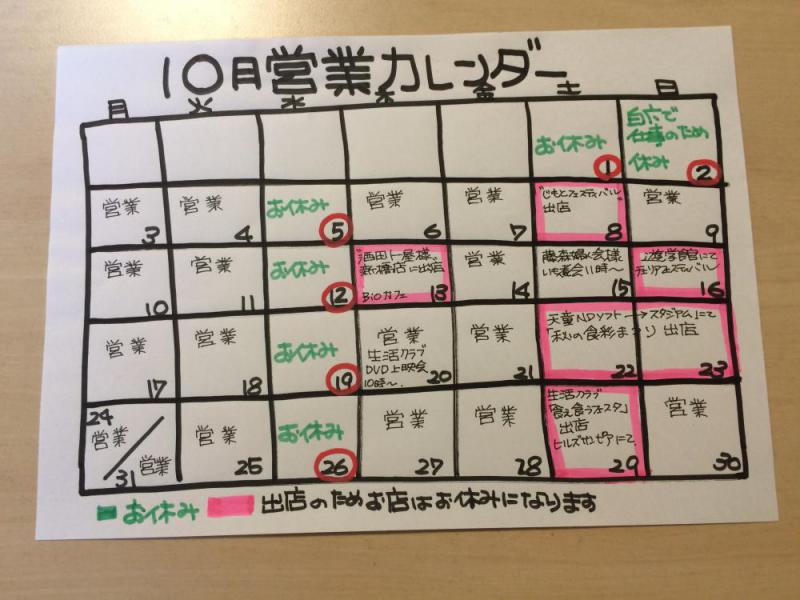 10月営業カレンダー
月 火 水 木 金 土 日
お休み
1
白六で
仕事のため
休み
2
営業
3
営業
4
お休み
5
営業
6
営業
7
"じもとフェスティバル"
出店
8
営業
9
営業
10
営業
11
お休み
12
酒田ト一屋様
新橋店に出店
Bioカフェ
13
営業
14
藤森婦人会様
いも煮会11時〜
15
遊学館にて
フェスティバル
16
営業
17
営業
18
お休み
19
営業
生活クラブ
DVD上映会
10時〜
20
営業
21
天童NDソフト→スタジアムにて
「秋の食彩まつり 出店
22
23
24
営業
31
営業
営業
25
お休み
26
営業
27
営業
28
生活クラブ
食え食うフェスタ」
出店
ヒルズサンピアにて
29
営業
30
お休み 出店のためお店はお休みになります